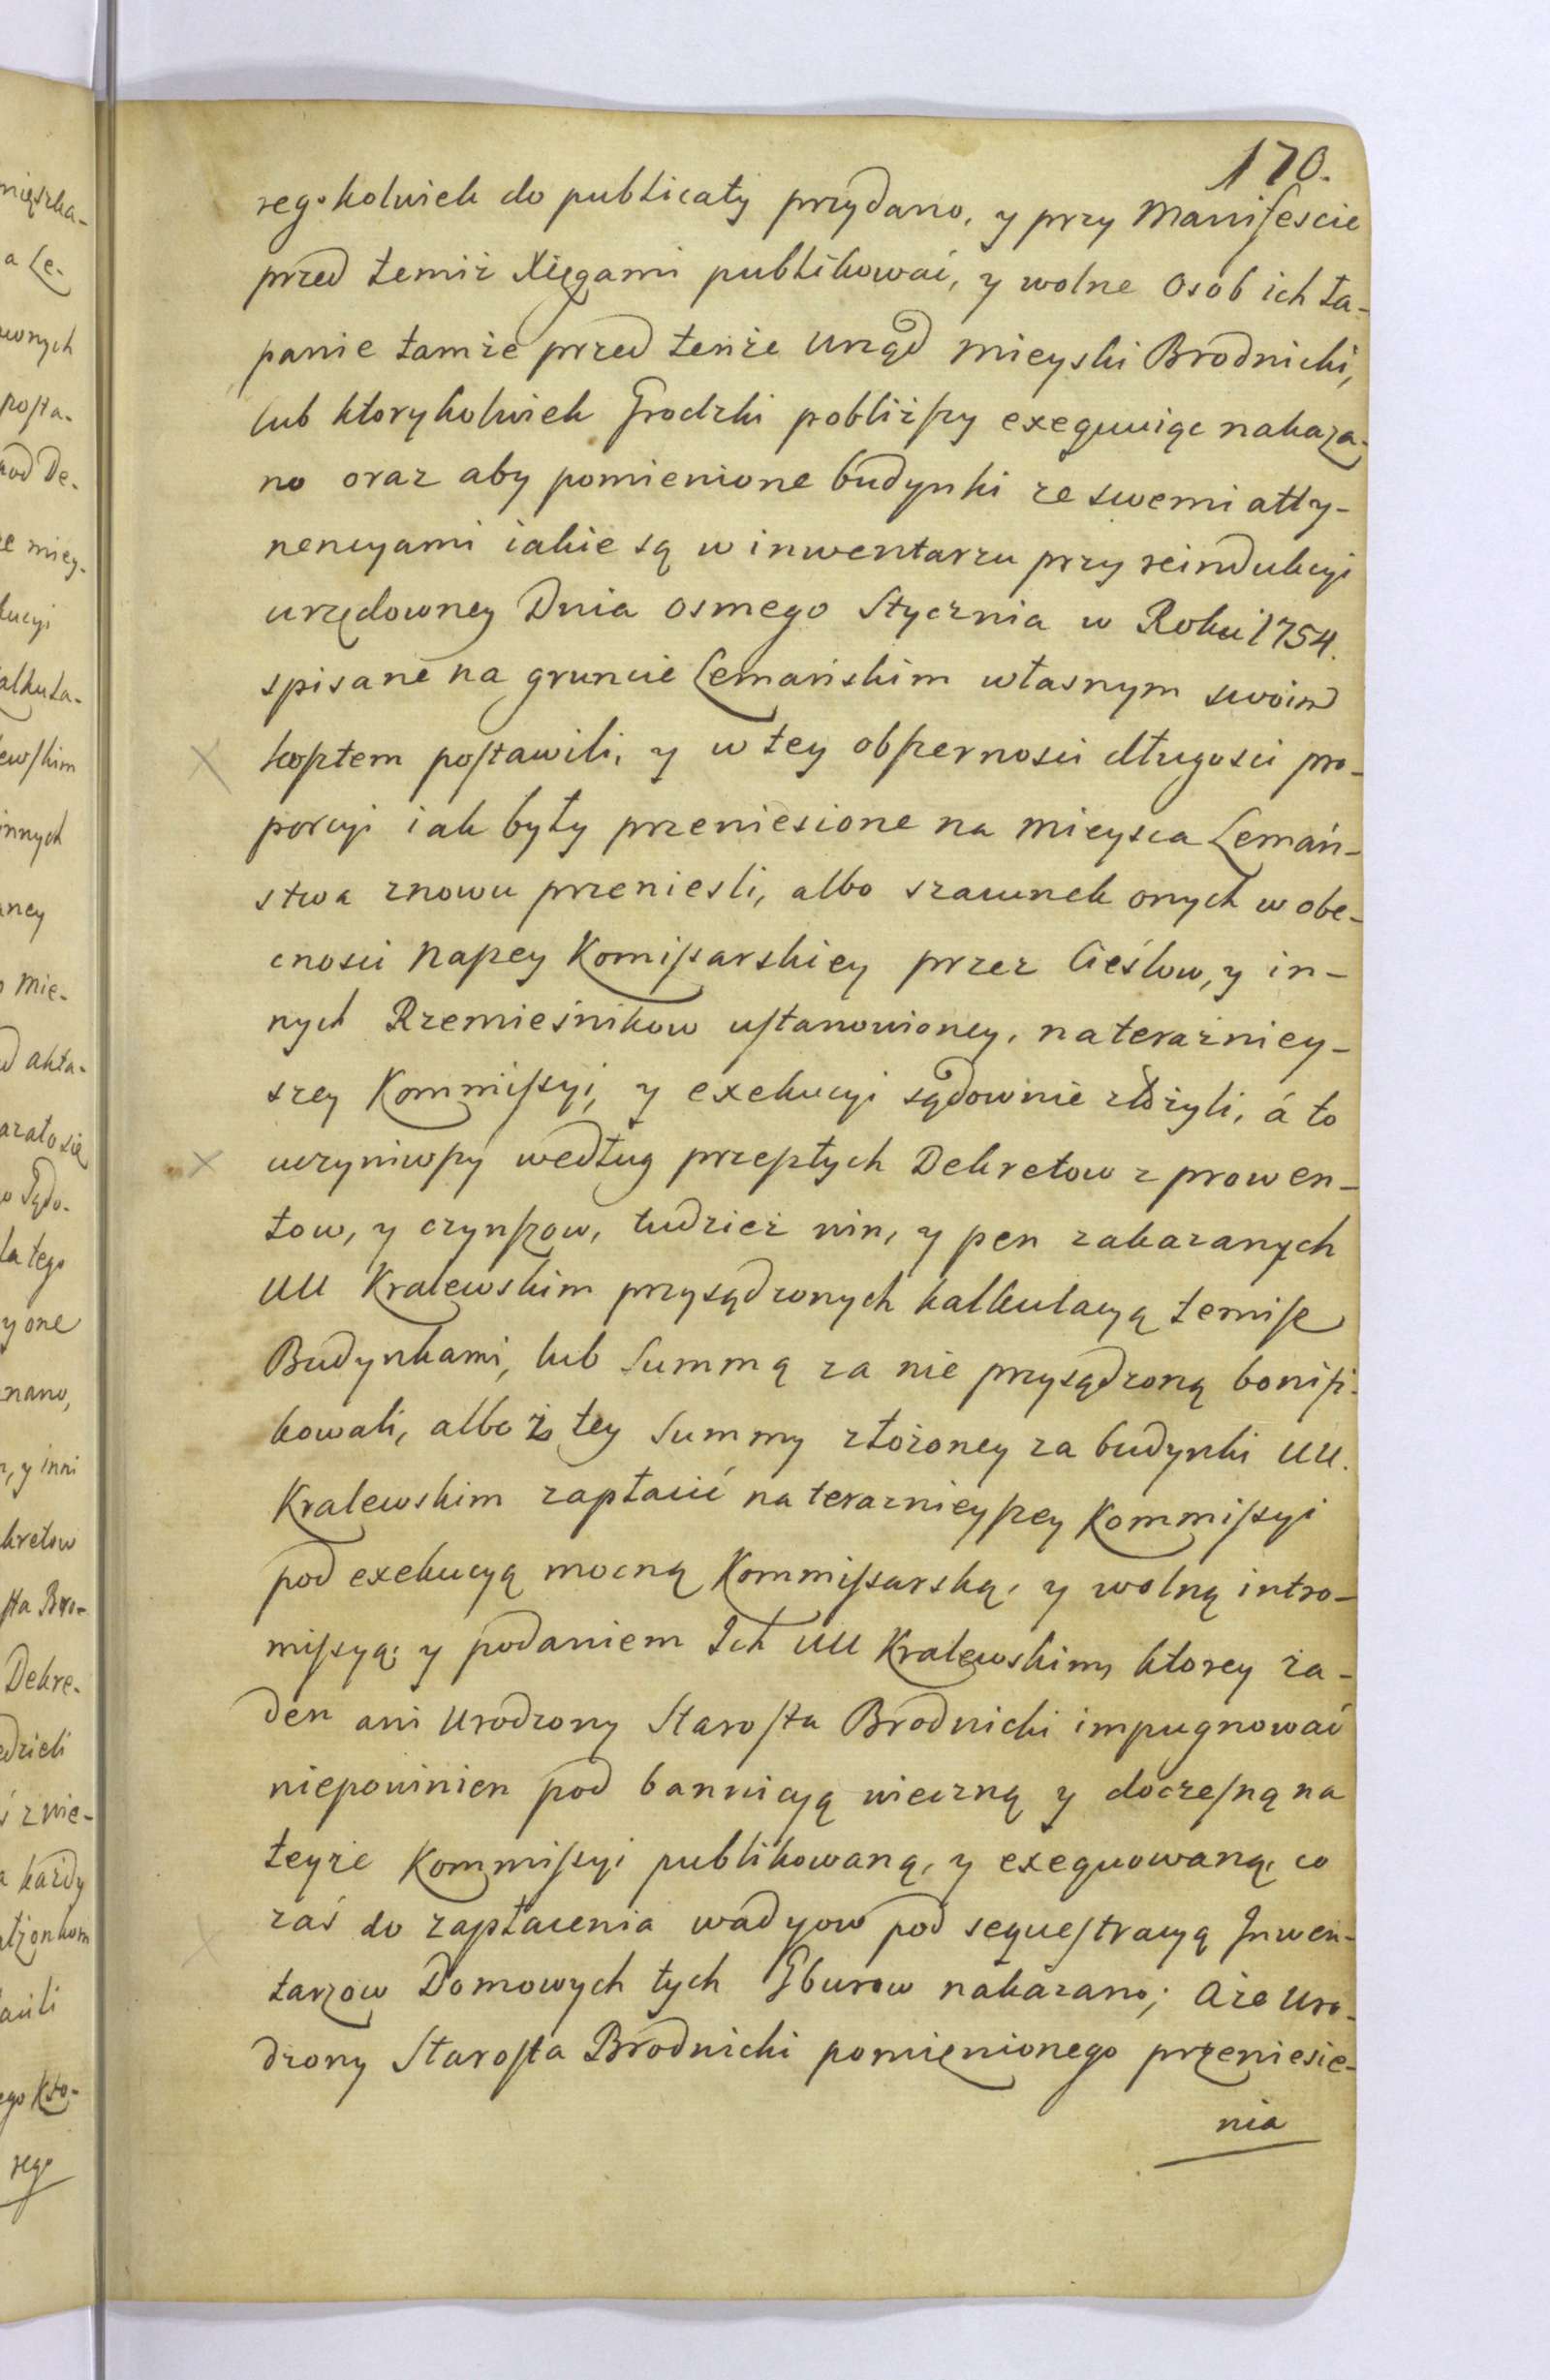 170.
rego kolwiek do publicaty przydano, y przy Manifescie
przed temiż Xięgami publikować, y wolne Osob ich ła-
panie tamże przed tenże Urząd Mieyski Brodnicki,
lub ktorykolwiek Grodzki pobliższy exequuiąc nakaza-
no oraz aby pomienione budynki ze swemi atty-
nencyami iakie są w inwentarzu przy reindukcyi
urzędowney Dnia osmego Stycznia w Roku 1754.
spisane na gruncie Lemańskim własnym swoim
kosztem postawili, y w tey obszernosci długosci pro-
porcyi iak były przeniesione na mieysca Lemań-
stwa znowu przeniesli, albo szacunek onych w obe-
cnosci naszey Komissarskiey przez Cieślow, y in-
nych Rzemieśnikow ustanowioney, na teraźniey-
szey Kommissyi, y exekucyi sądownie złożyli, á to
uczyniwszy według przeszłych Dekretow z prowen-
tow, y czynszow, tudzież win, y pen zakazanych
UU Kralewskim przysądzonych kalkulacyą temisz
Budynkami, lub Summą za nie przysądzoną bonifi-
kowali, albo z tey Summy złożoney za budynki UU.
Kralewskim zapłacić na teraznieyszey Kommissyi
pod exekucyą mocną Kommissarską, y wolną intro-
missyą; y podaniem Ich UU Kralewskim, ktorey ża-
den ani Urodzony Starosta Brodnicki impugnować
niepowinien pod bannicyą wieczną y doczesną na
teyże Kommissyi publikowaną, y exequowaną, co
zaś do zapłacenia wadyow pod sequestracyą Inwen-
tarzow Domowych tych Gburow nakazano; Aże Uro-
dzony Starosta Brodnicki pomięnionego przeniesie-
nia
mięszka-
a Le-
wnych
posta-
kod De-
że miey-
kucyi
alkula-
ewskim
innych
aney
o Mie-
d akta-
azało się
o Sądo-
la tego
y one
nano,
n, y inni
kretow
sta Bro-
Dekre-
edzieli
ś z wie-
a każdy
ałżonkom
acili
ego Kto-
rego